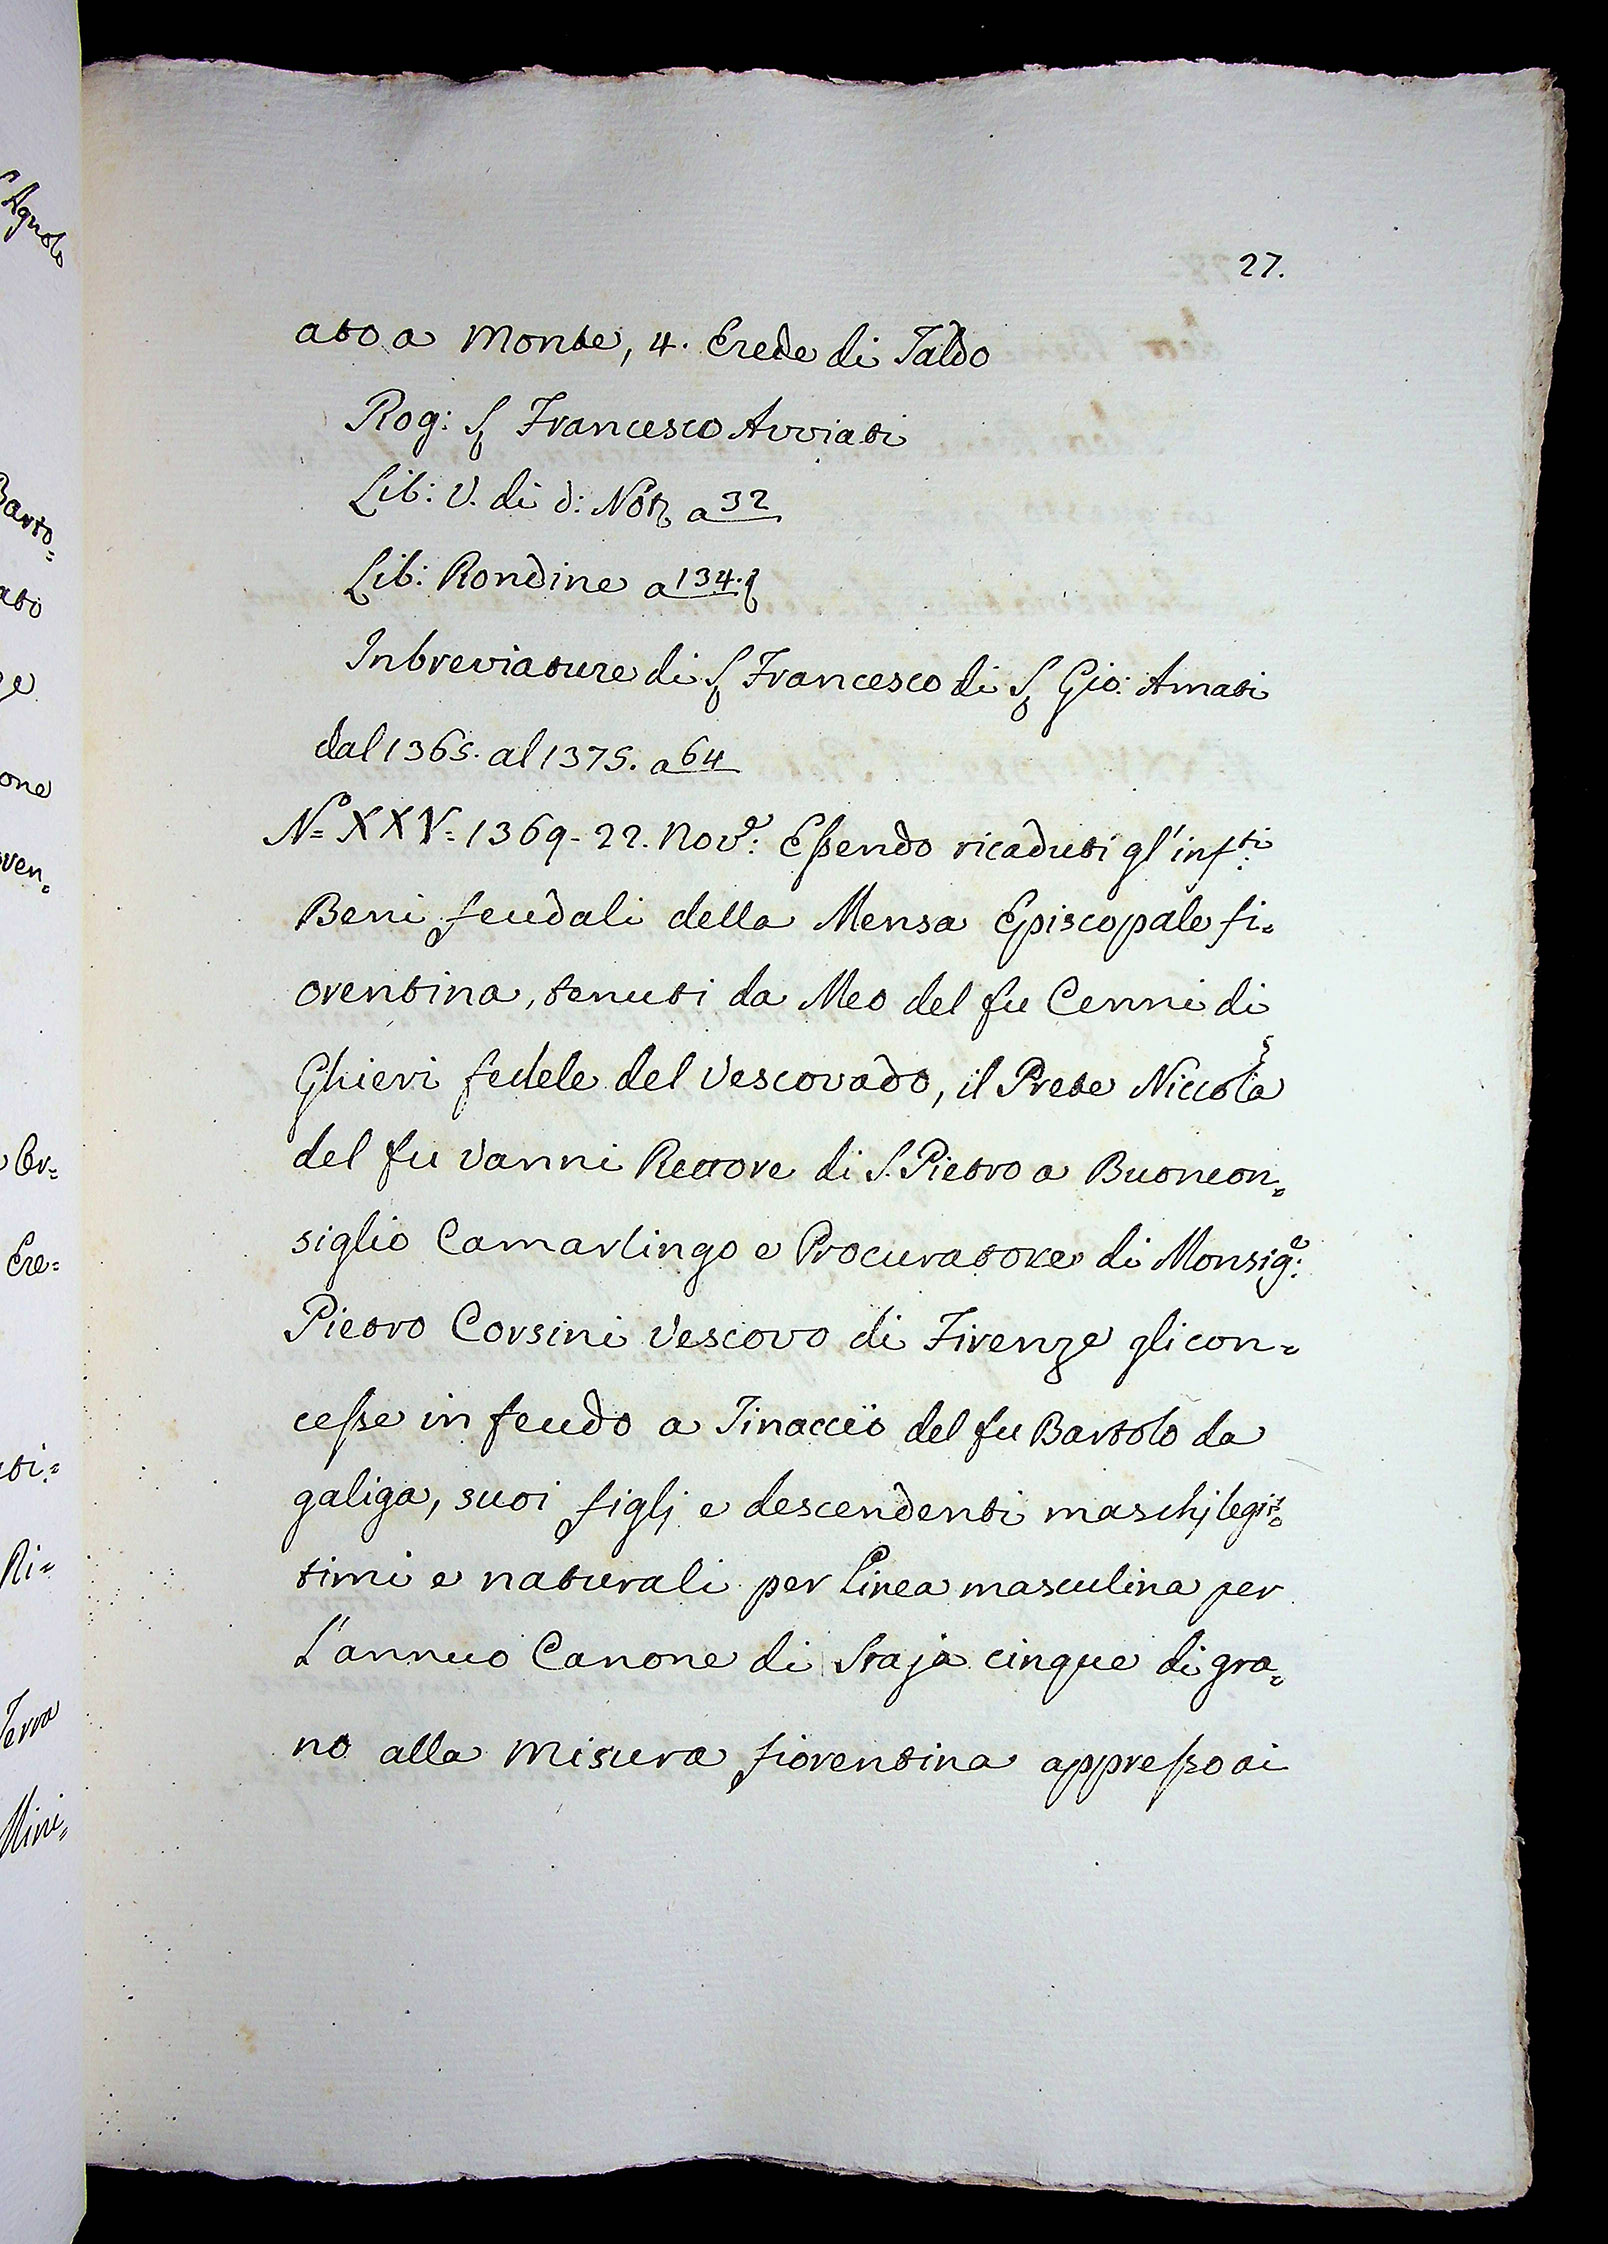 27.
ato a Monte, 4. Erede di Taldo
Rog: S Francesco Avviati
Lib: V. di d: Not a 32
Lib: Rondine a 134.
Inbreviature di S Francesco di S Gio: Amati
dal 1365. al 1375. a 64
No= XXV= 1369- 22. Nove: Essendo ricaduti gl'infti:
Beni feudali della Mensa Episcopale fi=
orentina, tenuti da Meo del fu Cenni di
Ghieri fedele del Vescovado, il Prete Niccola
del fu Vanni Rettore di S. Pietro a Buoncon=
siglio Camarlingo e Procuratore di Monsige:
Pietro Corsini Vescovo di Firenze gli con=
cesse in feudo a Tinaccio del fu Bartolo da
galiga, suoi figlj e descendenti maschj legit=
timi e naturali per Linea masculina per
L'annuo Canone di Staja cinque di gra=
no alla misura fiorentina appresso ai
Agnolo
Barto=
ato
one
ven=
Ere=
Ri=
Terra
Mini=